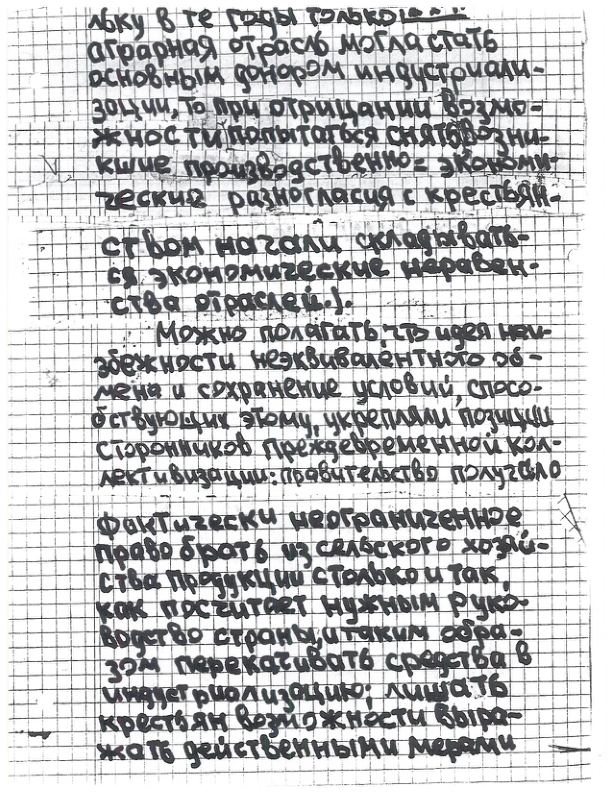 льку в те годы только
аграрная отрасль могла стать
основным донором индустриали-
зации, то при отрицании возмо-
жности попытаться снять возни-
кшие производственно-экономи-
ческие разногласия с крестьян-
ством начали складывать-
ся экономические неравен-
ства отраслей.).
Можно полагать, что идея неи-
збежности неэквивалентного об-
мена и сохранение условий, спосо-
бствующих этому, укрепляли позиции
сторонников преждевременной кол-
лективизации: правительство получало
фактически неограниченное
право брать из сельского хозяй-
ства продукции столько и так,
как посчитает нужным руко-
водство страны, и таким обра-
зом перекачивать средства в
индустриализацию; лишать
крестьян возможности выра-
жать действенными мерами